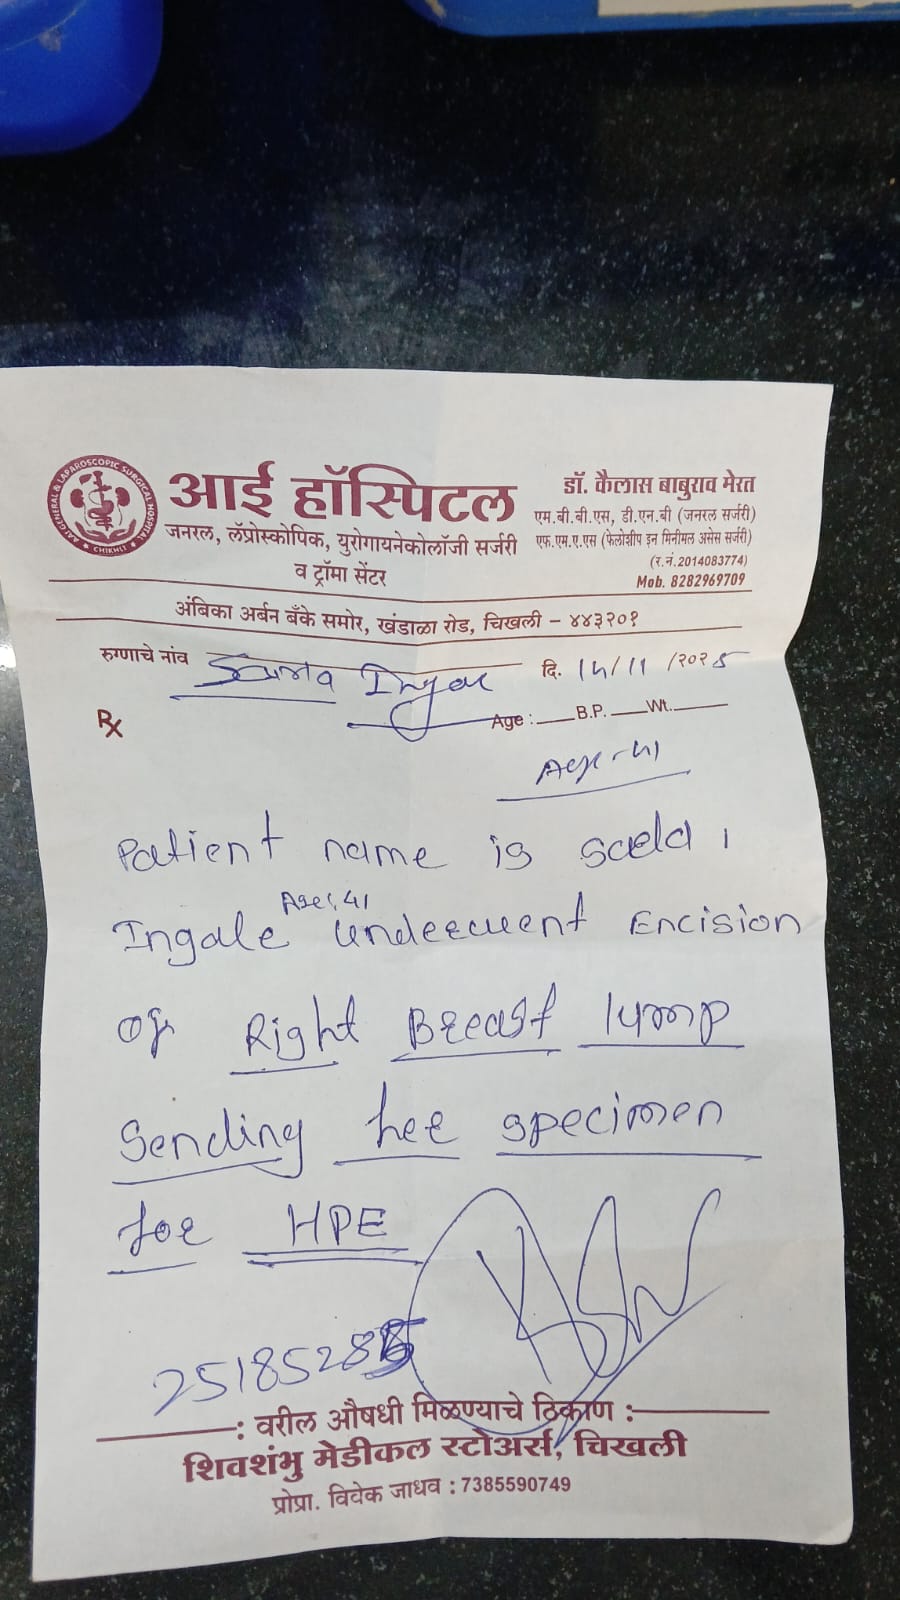 AAI GENERAL & LAPAROSCOPIC SURGICAL HOSPITAL
CHIKHLI
आई हॉस्पिटल
जनरल, लॅप्रोस्कोपिक, युरोगायनेकोलॉजी सर्जरी
व ट्रॉमा सेंटर
डॉ. कैलास बाबुराव मेरत
एम.बी.बी.एस, डी.एन.बी (जनरल सर्जरी)
एफ.एम.ए.एस (फेलोशीप इन मिनीमल अ‍ॅसेस सर्जरी)
(र.नं.2014083774)
Mob. 8282969709
अंबिका अर्बन बँके समोर, खंडाळा रोड, चिखली - ४४३२०१
रुग्णाचे नांव दि. 14/11/२०२5
Rx Age : B.P. Wt.
Age - 41
Patient name is
Ingale Age: 41 underwent Excision
of Right Breast lump
Sending her specimen
for HPE
: वरील औषधी मिळण्याचे ठिकाण :
शिवशंभु मेडीकल स्टोअर्स, चिखली
प्रोप्रा. विवेक जाधव : 7385590749